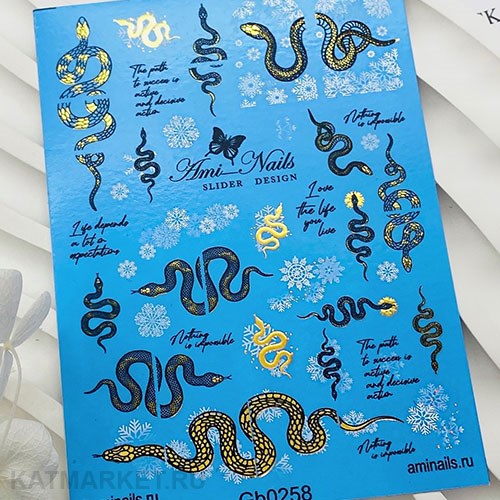 K
The path
to success is
active
and decisive
action.
Nothing is impossible
Ami_Nails
SLIDER DESIGN
Love
the life
you
live
Life depends
a lot on
expectations
Nothing
is impossible
The path
to success is
active
and decisive
action
Nothing
is impossible
aminails.ru
aminails.ru
Gb0258
KATMARKET.RU